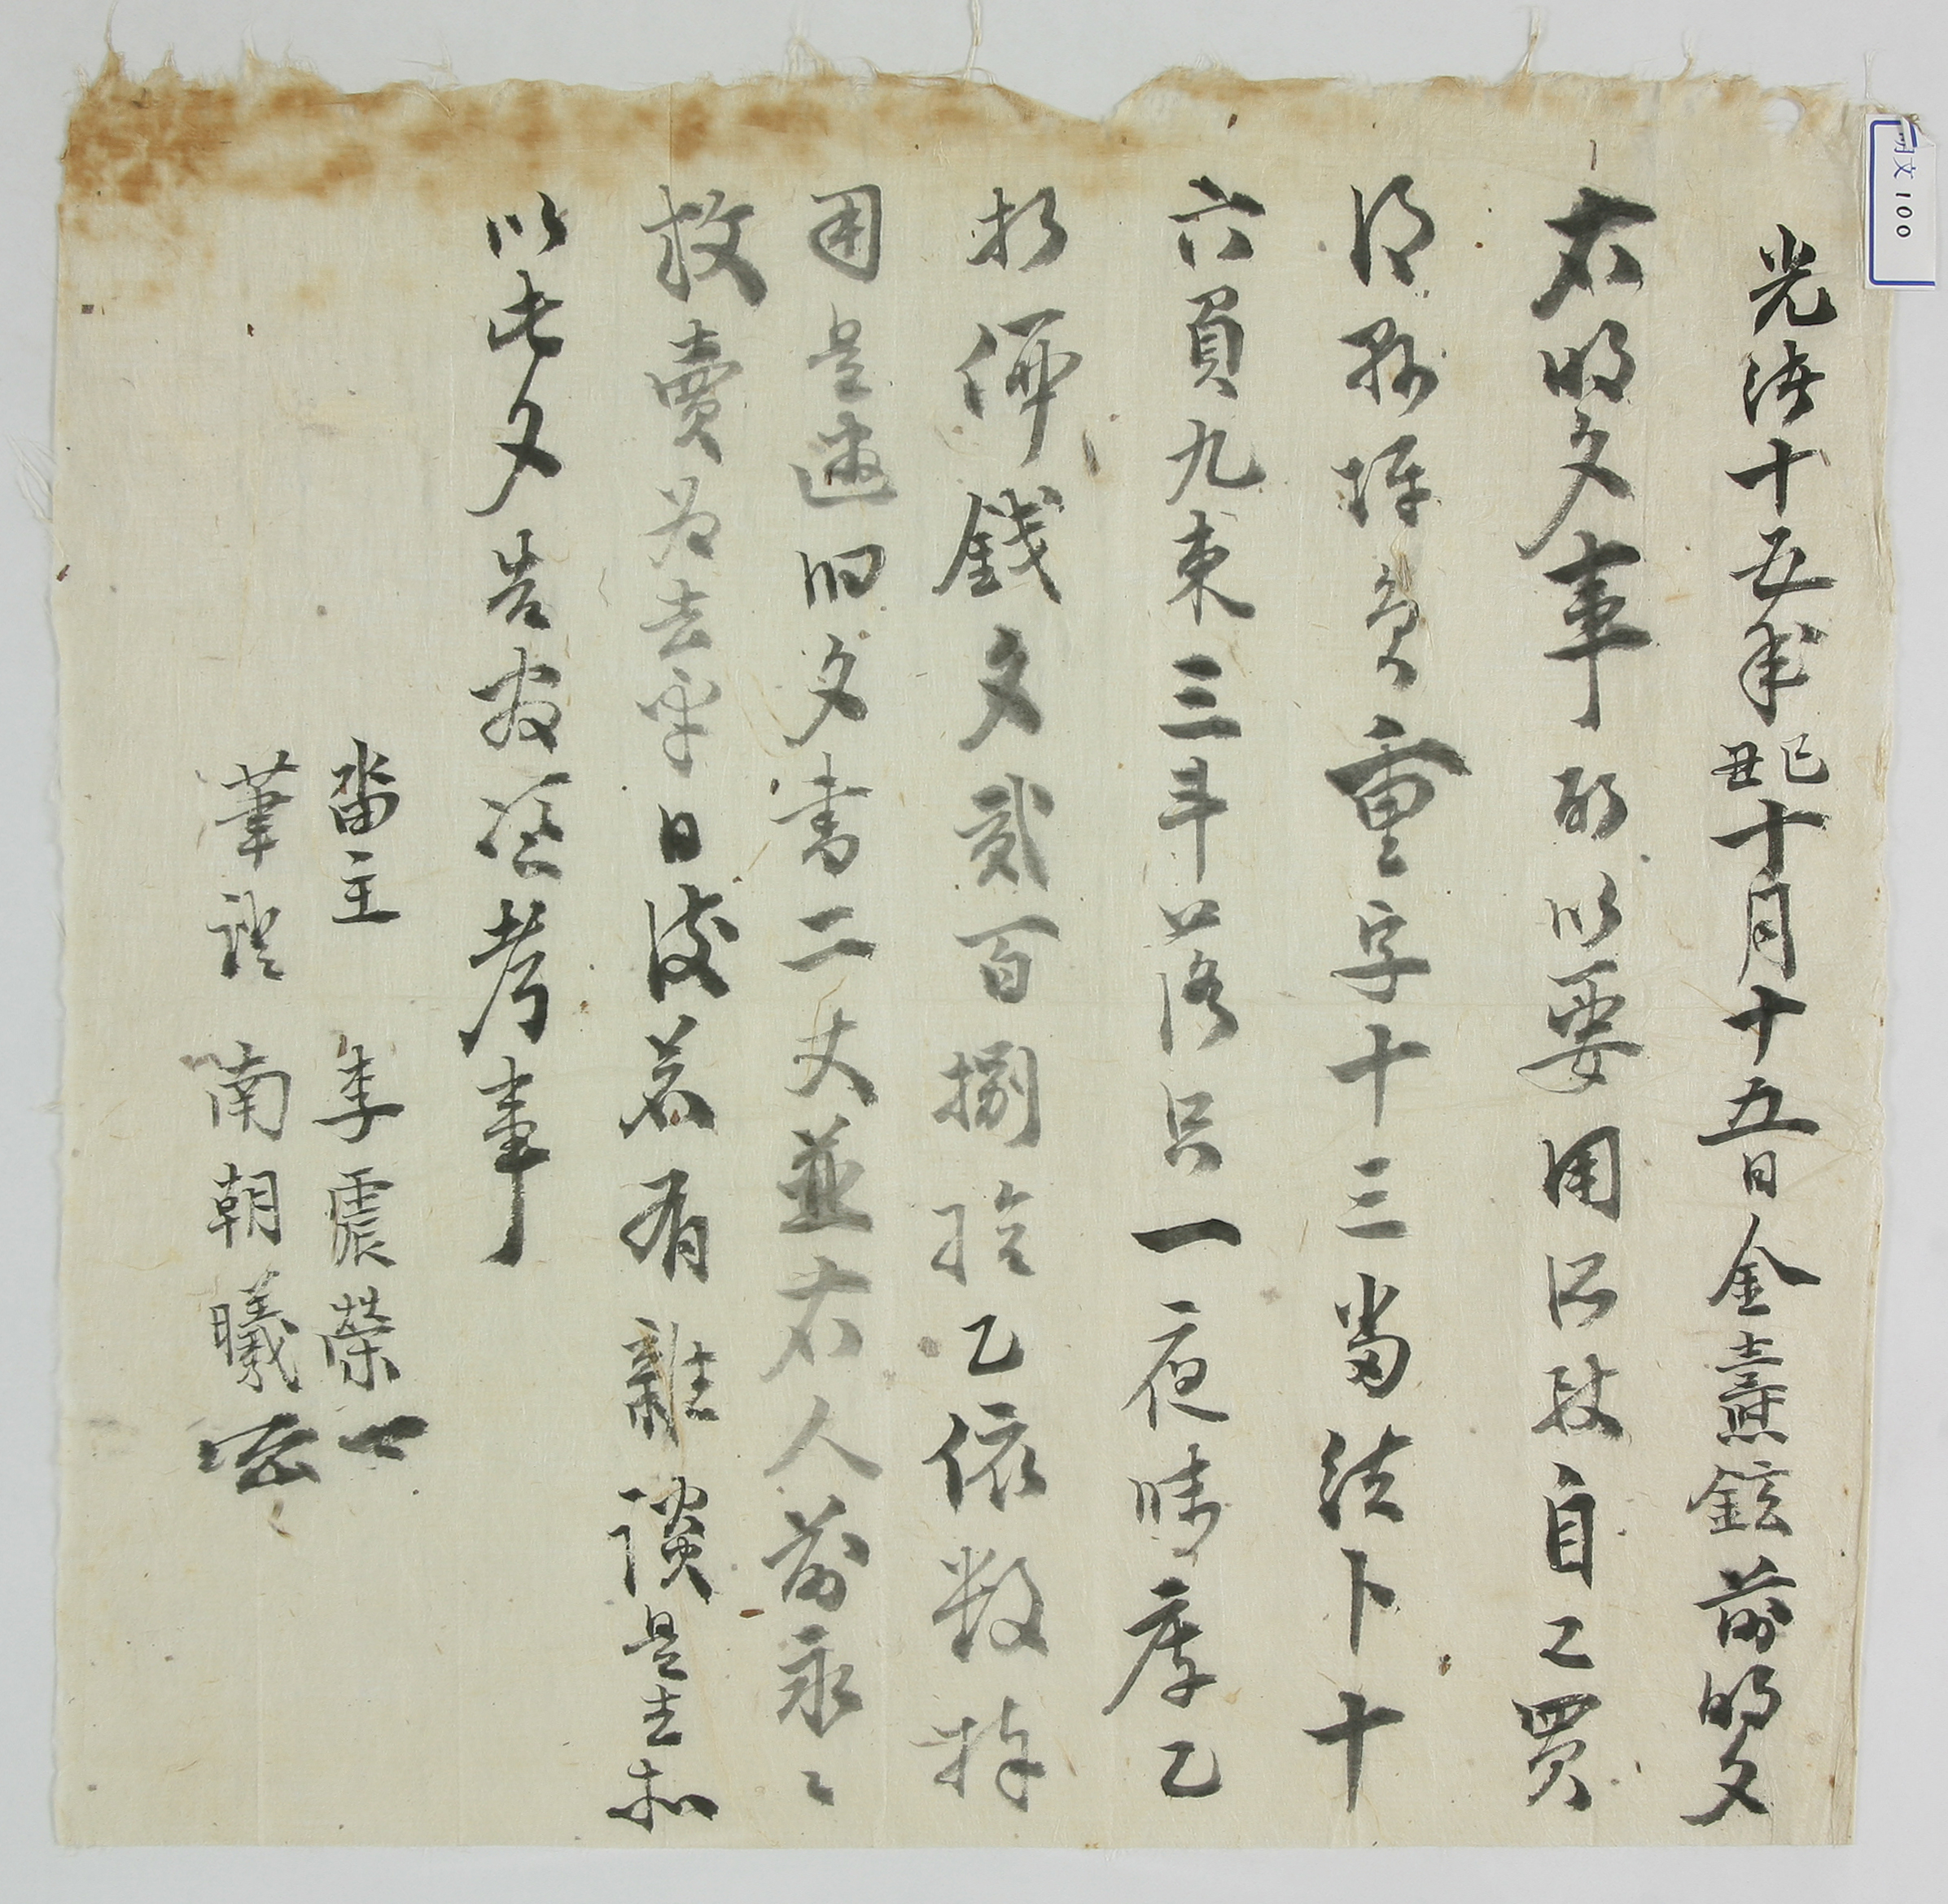 明文100
光緖十五年己丑十月十五日金燾鉉前明文
右明文事段以要用所致自己買
得縣坪員重字十三畓結卜十
六負九束三斗落只一夜味庫乙
折價錢文貳百捌拾乙依數捧
用是遣旧文書二丈並右人前永〻
放賣爲去乎日後若有雜談是去等
以此文告官憑考事
畓主 李震榮
筆證 南朝曦